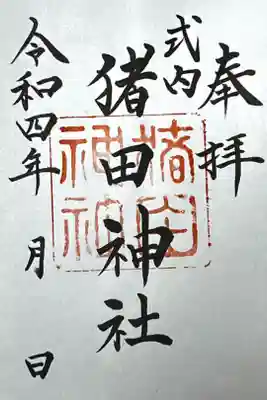 奉拝
式内
猪田神社
猪田
神社
令和四年 月 日